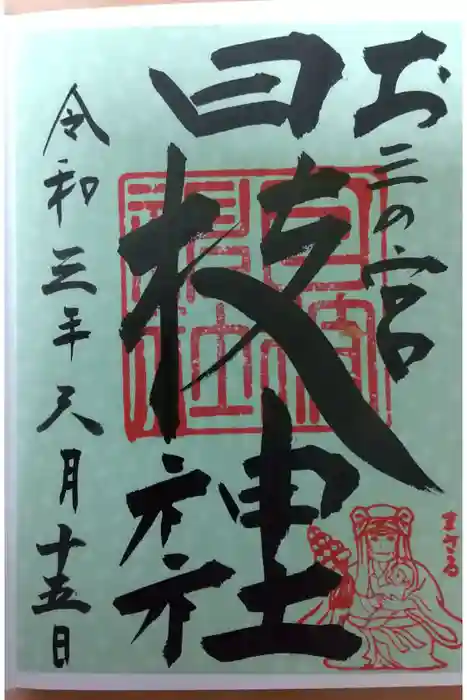 お三の宮
日枝神社
令和三年六月十五日
まさる